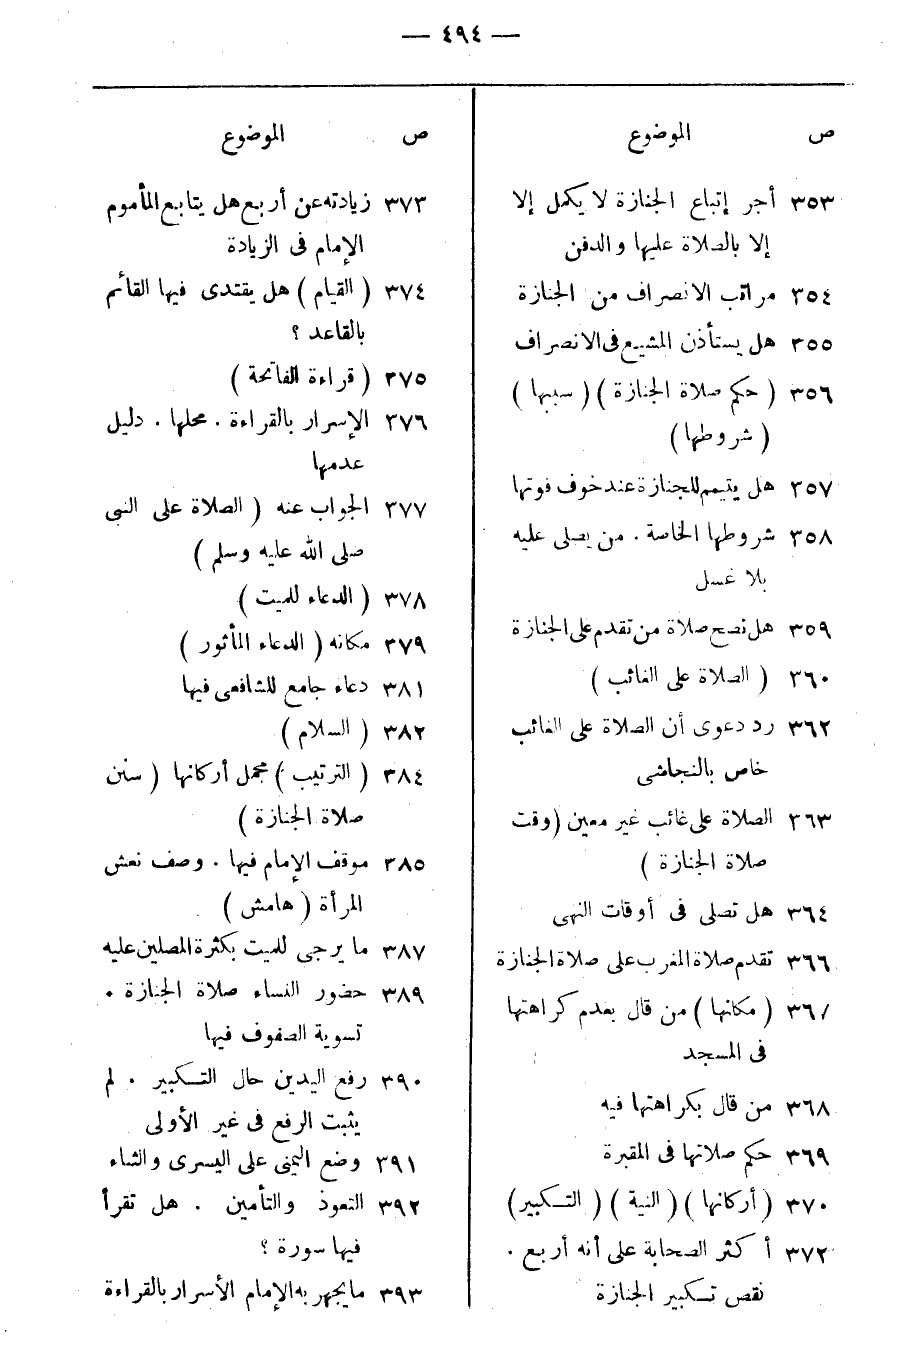 — ٤٩٤ —
ص الموضوع
٣٥٣ أجر إتباع الجنازة لا يكمل إلا
إلا بالصلاة عليها والدفن
٣٥٤ مراتب الانصراف من الجنازة
٣٥٥ هل يستأذن المشيع فى الانصراف
٣٥٦ ( حكم صلاة الجنازة ) ( سببها )
( شروطها )
٣٥٧ هل يتيمم للجنازة عند خوف فوتها
٣٥٨ شروطها الخاصة . من يصلى عليه
بلا غسل
٣٥٩ هل تصح صلاة من تقدم على الجنازة
٣٦٠ ( الصلاة على الغائب )
٣٦٢ رد دعوى أن الصلاة على الغائب
خاص بالنجاشى
٣٦٣ الصلاة على غائب غير معين ( وقت
صلاة الجنازة )
٣٦٤ هل تصلى فى أوقات النهى
٣٦٦ تقدم صلاة المغرب على صلاة الجنازة
٣٦٧ ( مكانها ) من قال بعدم كراهتها
فى المسجد
٣٦٨ من قال بكراهتها فيه
٣٦٩ حكم صلاتها فى المقبرة
٣٧٠ ( أركانها ) ( النية ) ( التكبير )
٣٧٢ أكثر الصحابة على أنه أربع .
نقص تكبير الجنازة
ص الموضوع
٣٧٣ زيادته عن أربع هل يتابع المأموم
الإمام فى الزيادة
٣٧٤ ( القيام ) هل يقتدى فيها القائم
بالقاعد ؟
٣٧٥ ( قراءة الفاتحة )
٣٧٦ الإسرار بالقراءة . محلها . دليل
عدمها
٣٧٧ الجواب عنه ( الصلاة على النبى
صلى الله عليه وسلم )
٣٧٨ ( الدعاء للميت )
٣٧٩ مكانه ( الدعاء المأثور )
٣٨١ دعاء جامع للشافعى فيها
٣٨٢ ( السلام )
٣٨٤ ( الترتيب ) مجمل أركانها ( سنن
صلاة الجنازة )
٣٨٥ موقف الإمام فيها . وصف نعش
المرأة ( هامش )
٣٨٧ ما يرجى للميت بكثرة المصلين عليه
٣٨٩ حضور النساء صلاة الجنازة .
تسوية الصفوف فيها
٣٩٠ رفع اليدين حال التكبير . لم
يثبت الرفع فى غير الأولى
٣٩١ وضع اليمنى على اليسرى والثناء
٣٩٢ التعوذ والتأمين . هل تقرأ
فيها سورة ؟
٣٩٣ ما يجهر به الإمام الأسرار بالقراءة